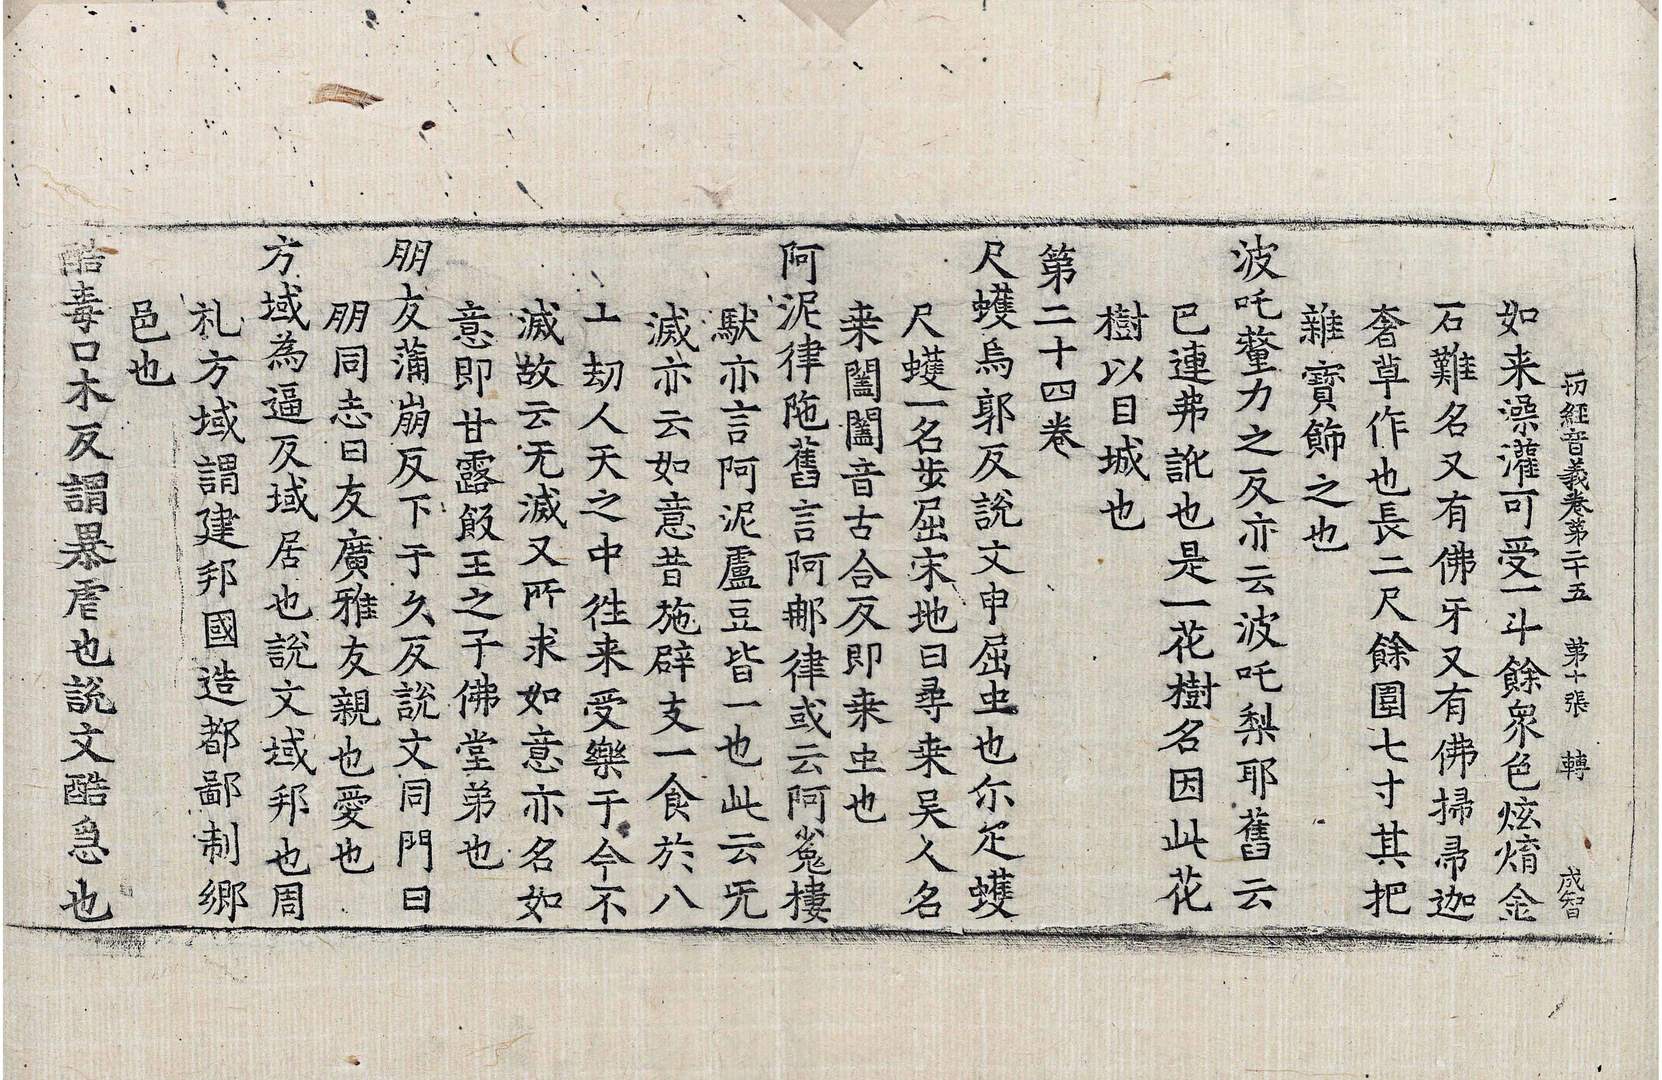 一切經音義卷第二十五 第十張 轉 成智
如来澡灌可受一斗餘衆色炫焴金
石難名又有佛牙又有佛掃帚迦
奢草作也長二尺餘圍七寸其把
雜寶飾之也
波吒釐力之反亦云波吒梨耶舊云
巴連弗訛也是一花樹名因此花
樹以目城也
第二十四卷
尺蠖烏郭反說文申屈虫也尒疋蠖
尺蠖一名步屈宋地曰尋桒吴人名
桒闔闔音古合反即桒虫也
阿泥律陁舊言阿㝹律或云阿㝹樓
馱亦言阿泥盧豆皆一也此云无
滅亦云如意昔施辟支一食於八
十劫人天之中徃来受樂于今不
滅故云无滅又所求如意亦名如
意即甘露飯王之子佛堂弟也
朋友蒲崩反下于久反說文同門曰
朋同志曰友廣雅友親也愛也
方域為逼反域居也說文域邦也周
礼方域謂建邦國造都鄙制鄉
邑也
酷毒口木反謂暴虐也說文酷急也